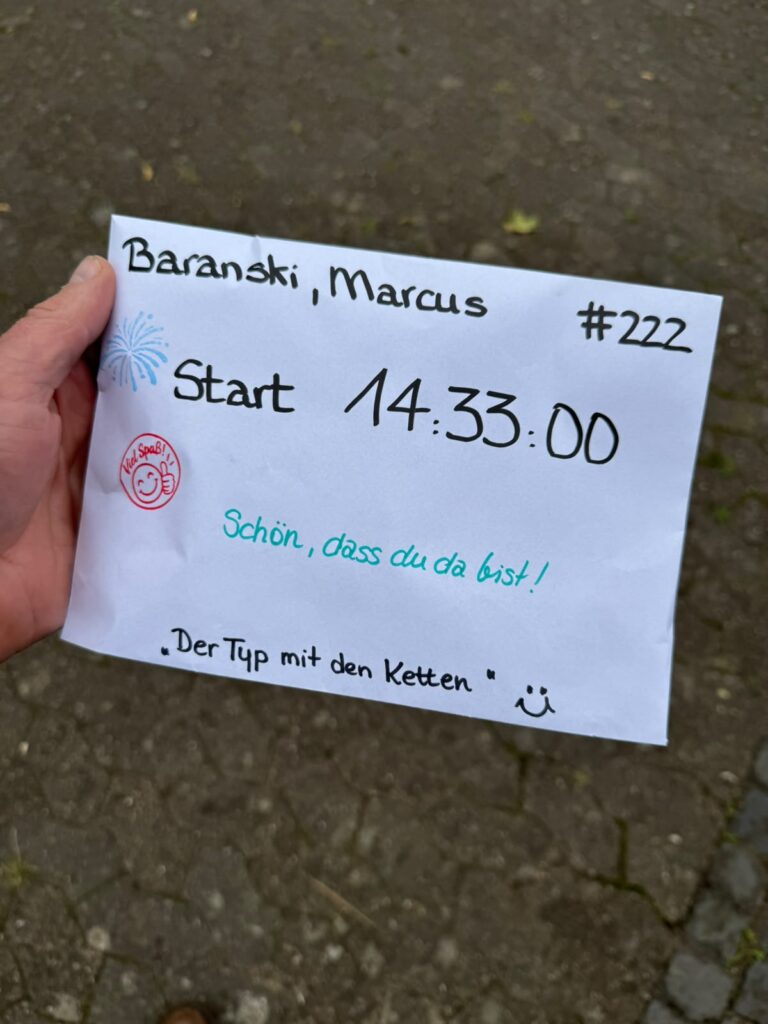 Baranski, Marcus
#222
Start 14:33:00
Viel Spaß!
Schön, dass du da bist!
„Der Typ mit den Ketten"